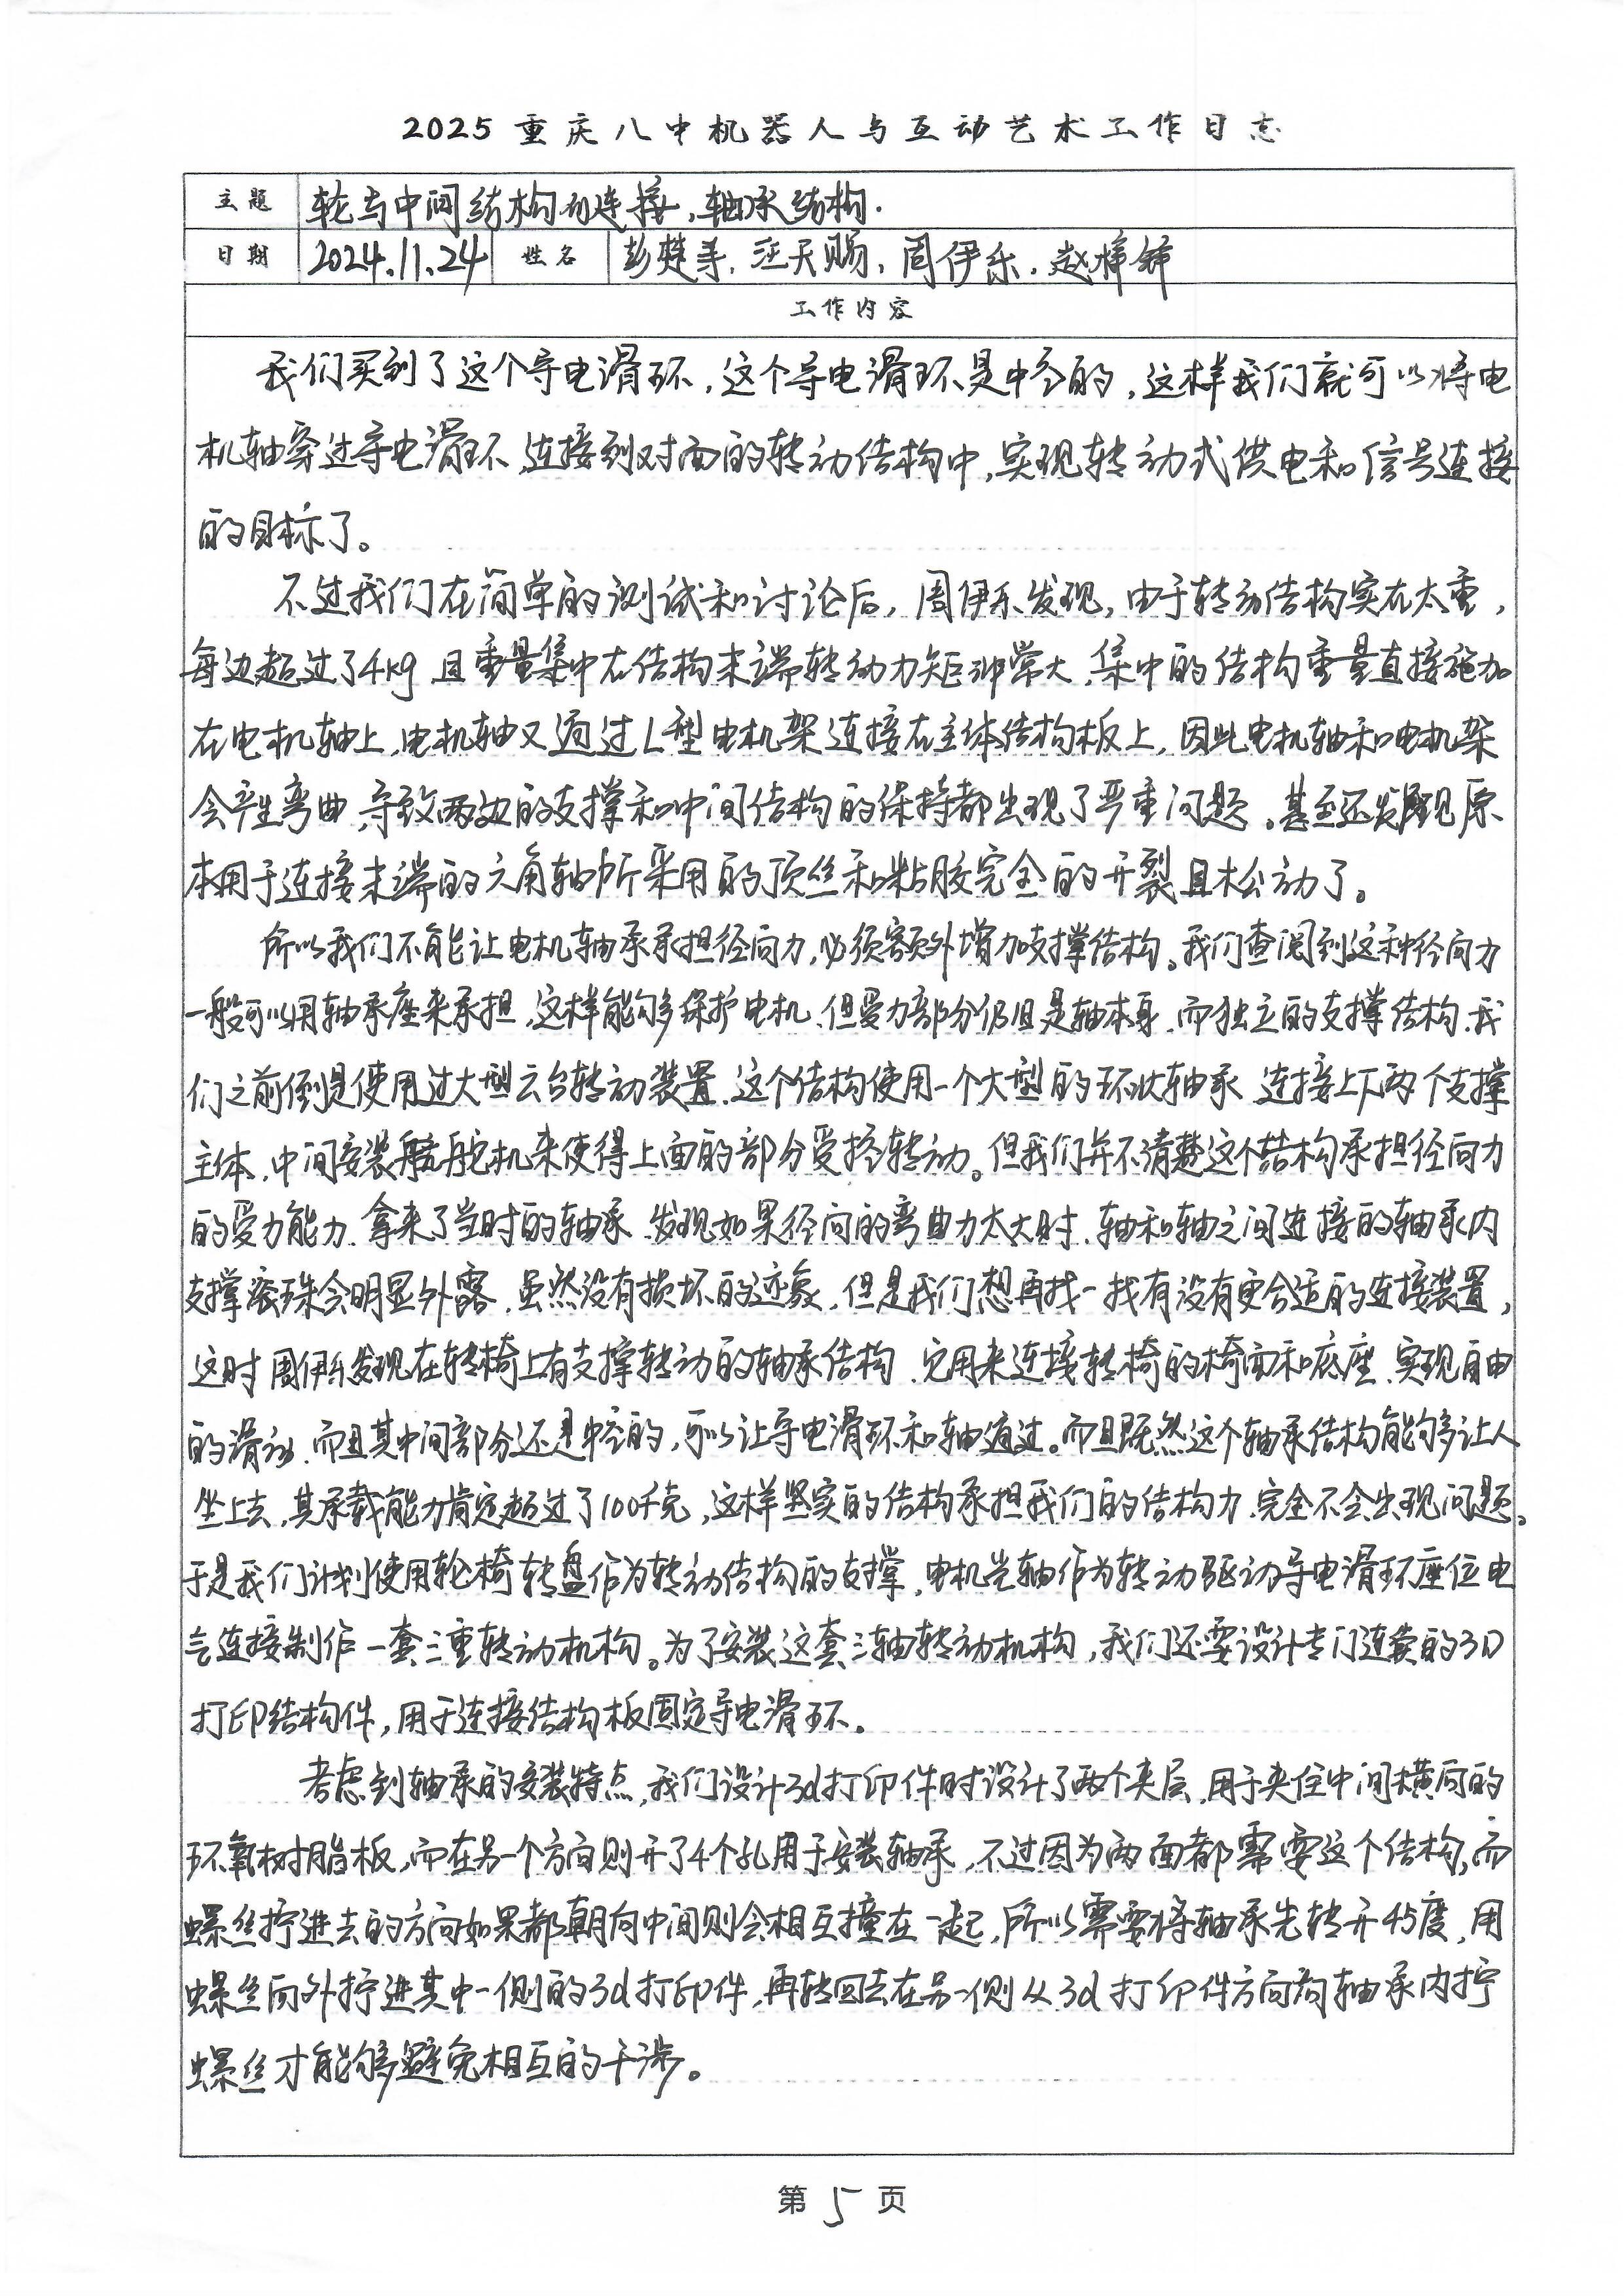 2025重庆八中机器人与互动艺术工作日志
主题 轮与中间结构的连接,轴承结构.
日期 2024.11.24 姓名 彭楚 汪天赐,周伊乐,赵梓铎
工作内容
我们买到了这个导电滑环,这个导电滑环是中空的,这样我们就可以将电
机轴穿过导电滑环,连接到对面的转动结构中,实现转动式供电和信号连接
的目标了。
不过我们在简单的测试和讨论后,周伊乐发现,由于转动结构实在太重,
每边超过了4kg,且重量集中在结构末端转动力矩非常大,集中的结构重量直接施加
在电机轴上,电机轴又通过L型电机架连接在主体结构板上,因此电机轴和电机架
会产生弯曲,导致两边的支撑和中间结构的保持都出现了严重问题。甚至还发现原
本用于连接末端的六角轴所采用的顶丝和粘胶完全的开裂且松动了。
所以我们不能让电机轴承承担径向力,必须额外增加支撑结构。我们查阅到这种径向力
一般可以用轴承座来承担,这样能够保护电机,但受力部分仍旧是轴本身,而独立的支撑结构,我
们之前倒是使用过大型云台转动装置,这个结构使用一个大型的环状轴承,连接上下两个支撑
主体,中间安装舵机来使得上面的部分受控转动。但我们并不清楚这个结构承担径向力
的受力能力,拿来了当时的轴承,发现如果径向的弯曲力太大时,轴和轴之间连接的轴承内
支撑滚珠会明显外露,虽然没有损坏的迹象,但是我们想再找一找有没有更合适的连接装置,
这时周伊乐发现在转椅上有支撑转动的轴承结构,它用来连接转椅的椅面和底座,实现自由
的滑动,而且其中间部分还是中空的,可以让导电滑环和轴通过。而且既然这个轴承结构能够多让人
坐上去,其承载能力肯定超过了100千克,这样坚实的结构承担我们的结构力,完全不会出现问题。
于是我们计划使用轮椅转盘作为转动结构的支撑,电机光轴作为转动驱动导电滑环座位电
气连接制作一套三重转动机构。为了安装这套三轴转动机构,我们还要设计专门连接的3D
打印结构件,用于连接结构板固定导电滑环。
考虑到轴承的安装特点,我们设计3d打印件时设计了两个夹层,用于夹住中间横向的
环氧树脂板,而在另一个方向则开了4个孔用于安装轴承,不过因为两面都需要这个结构,而
螺丝拧进去的方向如果都朝向中间则会相互撞在一起,所以需要将轴承先转开45度,用
螺丝向外拧进其中一侧的3d打印件,再转回去在另一侧从3d打印件方向向轴承内拧
螺丝才能够避免相互的干涉。
第5页